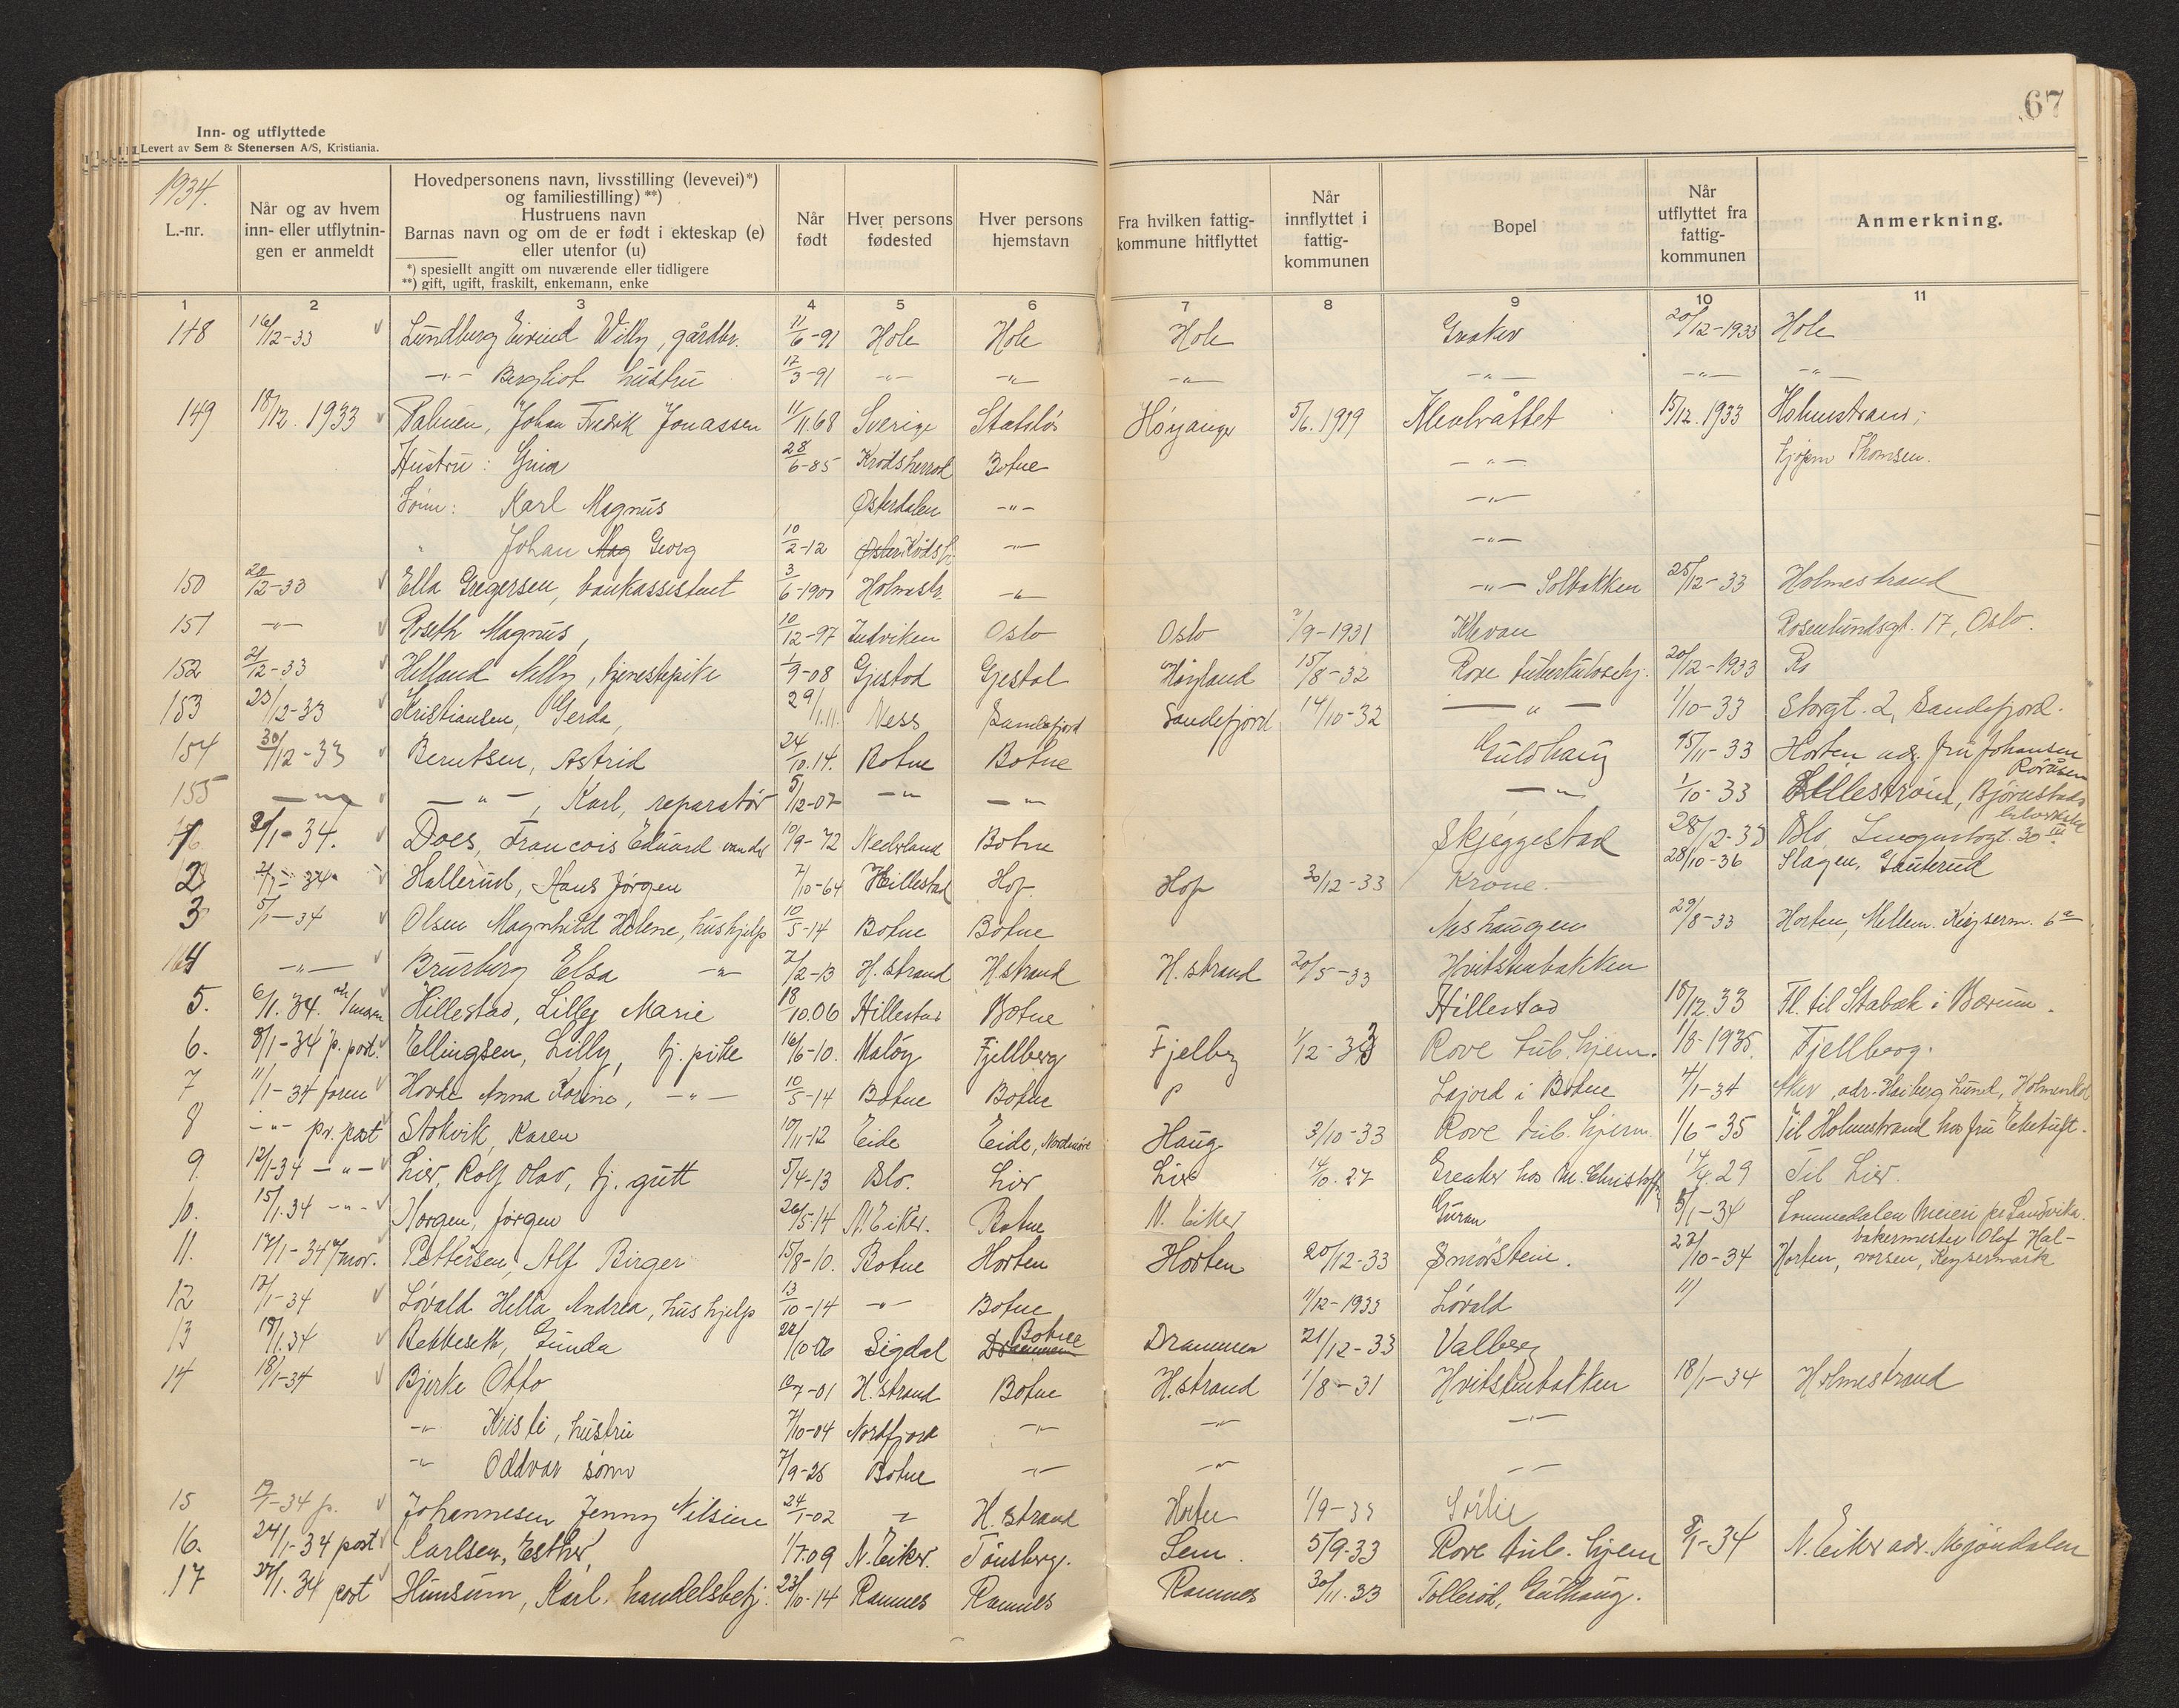 67
Inn- og utflyttede
Levert av Sem & Stenersen A/S, Kristiania.
1934.
L.-nr.
Når og av hvem inn- eller utflytnin- gen er anmeldt
Hovedpersonens navn, livsstilling (levevei)*)
og familiestilling) **)
Hustruens navn
Barnas navn og om de er født i ekteskap (e)
eller utenfor (u)
*) spesiellt angitt om nuværende eller tidligere
**) gift, ugift, fraskilt, enkemann, enke
Når født
Hver persons fødested
Hver persons hjemstavn
Fra hvilken fattig- kommune hitflyttet
Når innflyttet i fattig- kommunen
Bopel
Når utflyttet fra fattig- kommunen
Anmerkning.
1 2 3 4 5 6 7 8 9 10 11
148 16/12-33 Lundberg Eivind Willy, gårdbr. 11/6-91 Hole Hole Hole Greaker 20/12-1933 Hole
-"- Bergliot hustru 17/3-91 -"- -"- -"- -"- -"- -"-
149 18/12. 1933 Palmen, Johan Fredrik Jonassen 11/11.68 Sverige Statsløs Høyanger 5/6. 1919 15/12. 1933 Holmestrand;
Hustru: 28/6-85 Krødsherred Botne -"- Thomsen.
Sønn: Karl Magnus Østerdalen -"- -"-
" Johan Mag Georg 10/2-12 Krødsh. -"- -"-
150 20/12-33 Ella Gregersen, bankassistent 3/6-1900 Holmestr. -"- -"- Solbakken 25/12-33 Holmestrand
151 -"- Roseth Magnus, 10/12-97 Innviken Oslo Oslo 2/9-1931 Klevan Rosenlundsgt. 17, Oslo.
152 21/12-33 Helland Nelly, tjenestepike 1/9-08 Gjestad Gjestal Høyland 15/8-32 Rove tuberkulosehj. 20/12-1933
153 23/12-33 Kristiansen, Gerda, 29/1.11. Ness Sandefjord Sandefjord 14/10-32 -"- 1/10-33 Storgt. 2, Sandefjord.
154 30/12-33 Berntsen, Astrid 24/10.14. Botne Botne Guldhaug 15/11-33 Horten adr. fru Johansen
Røråsen
155 -"- -"-, Karl, reparatør 5/12-07 -"- -"- -"- 1/10-33 Lillestrøm, Bjørnstads
1 Does, Francois Eduard van der 10/9-72 Nederland Botne Skjeggestad 28/12-33 Oslo
2 Hallerud, Hans Jørgen 7/10-64 Hillestad Hof Hof 30/12-33 Krone. 28/10-36 Slagen, Gauterud
3 5/1-34 Olsen Magnhild Helene, hushjelp 10/5-14 Botne Botne Neshaugen 29/8-33 Horten, Mellem. Keyserm. 6a
4 -"- Brurberg Elsa -"- 2/2-13 H. strand H. strand H. strand 20/5-33 Hvitstenbakken
5. 6/1. 34. Hillestad, Lilly Marie 18/10.06 Hillestad Botne Hillestad 18/12.33 Fl. til Stabæk i Bærum.
6. 8/1-34 p. post. Ellingsen, Lilly, tj. pike 16/6-10. Maløy Fjellberg Fjelberg 1/12-33 Rove tub. hjem. 1/8-1935 Fjellberg.
7 11/1-34 Hovde Anna Karine, -"- 10/5-14 Botne Botne Lajord i Botne 4/1-34 Aker, adr. Haiberg Lund, Holmenkol
8 -"- pr. post Stokvik, Karen 10/11-12 Eide Eide, Nordmøre Haug 3/10-33 Rove tub. hjem 1/6-35 Til Holmestrand hos fru Eketuft.
9. 12/1-34 -"- Lier, Rolf Olav, tj. gutt 5/4-13 Oslo. Lier Lier 14/10.27 Greaker hos M. Christoff 14/4.29 Til Lier.
10. 15/1.34 -"- Horgen, Jørgen 26/5-14 N. Eiker. Botne N. Eiker Guran 8/1-34 Lommedalen Meieri pr Sandvika.
11. 17/1-34 Pettersen, Alf Birger 15/8-10. Botne Horten Horten 20/12-33 Smørstein. 27/10-34 Horten, bakermester Olaf Hal-
vorsen, Keysermark
12 17/1-34 Løvald Hella Andrea, hushjelp 13/10-14 -"- Botne 11/12-1933 Løvald 11/
13 18/1.34 Bekkeseth, Gunda 22/10-06 Sigdal Drammen Botne Drammen 21/12-33 Valberg
14 18/1-34 Bjerke Otto H. strand Botne H. strand 1/8-31 Hvitstenbakken 18/1-34 Holmestrand
-"- Kristi, hustru 7/10-04 Nordfjord -"- -"- -"-
-"- Oddvar sønn 7/9-25 Botne -"- -"- -"-
15 19/1-34 p. Johannesen Jenny Nilsine 24/1-02 -"- H. strand Horten 1/9-33 Sørlie
16. 24/1-34 post Carlsen, Esther, 1/7.09 N. Eiker. Tønsberg. Sem. 5/9-33 Rove tub. hjem 8/1-34 N. Eiker adr. Mjøndalen
17 27/1. 34 post Hunsum, Karl. handelsbetj. 23/10-14 Ramnes Ramnes Ramnes 30/11.33 Tollerød, Gulhaug.